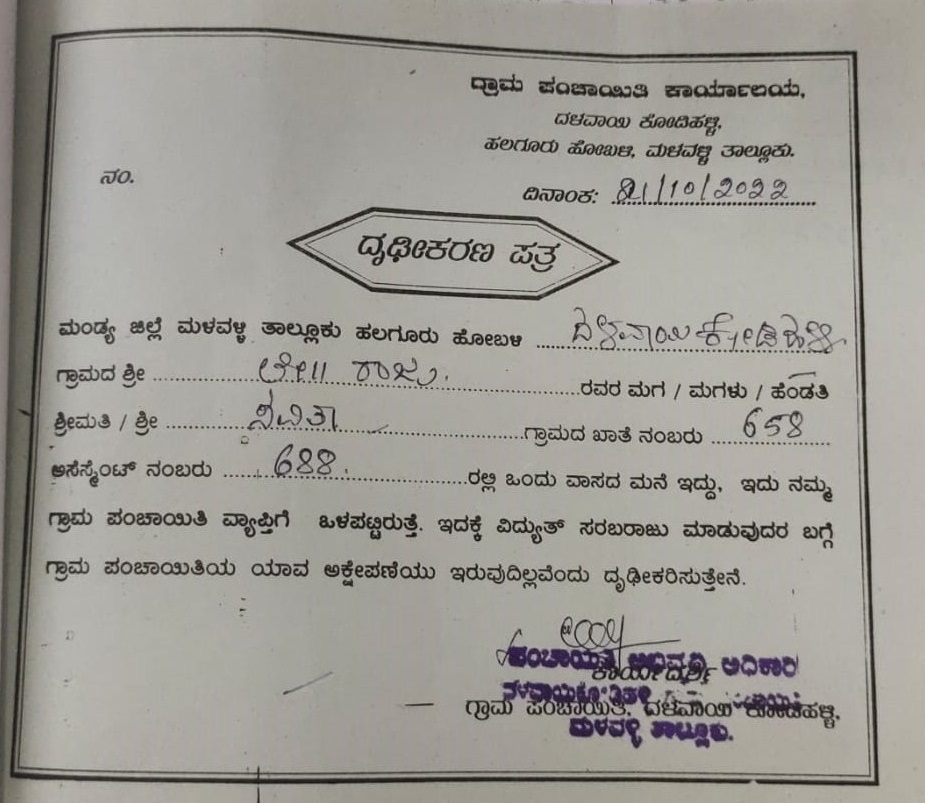 ಗ್ರಾಮ ಪಂಚಾಯಿತಿ ಕಾರ್ಯಾಲಯ,
ದಳವಾಯಿ ಕೋಡಿಹಳ್ಳಿ,
ಹಲಗೂರು ಹೋಬಳಿ, ಮಳವಳ್ಳಿ ತಾಲ್ಲೂಕು.
ನಂ.
ದಿನಾಂಕ: 21/10/2022
ದೃಢೀಕರಣ ಪತ್ರ
ಮಂಡ್ಯ ಜಿಲ್ಲೆ ಮಳವಳ್ಳಿ ತಾಲ್ಲೂಕು ಹಲಗೂರು ಹೋಬಳಿ ದಳವಾಯಿ ಕೋಡಿಹಳ್ಳಿ
ಗ್ರಾಮದ ಶ್ರೀ ರಾಜು. ರವರ ಮಗ / ಮಗಳು / ಹೆಂಡತಿ
ಶ್ರೀಮತಿ / ಶ್ರೀ ಸವಿತಾ ಗ್ರಾಮದ ಖಾತೆ ನಂಬರು 658
ಅಸೆಸ್ಮೆಂಟ್ ನಂಬರು 688. ರಲ್ಲಿ ಒಂದು ವಾಸದ ಮನೆ ಇದ್ದು, ಇದು ನಮ್ಮ
ಗ್ರಾಮ ಪಂಚಾಯಿತಿ ವ್ಯಾಪ್ತಿಗೆ ಒಳಪಟ್ಟಿರುತ್ತೆ. ಇದಕ್ಕೆ ವಿದ್ಯುತ್ ಸರಬರಾಜು ಮಾಡುವುದರ ಬಗ್ಗೆ
ಗ್ರಾಮ ಪಂಚಾಯಿತಿಯ ಯಾವ ಅಕ್ಷೇಪಣೆಯು ಇರುವುದಿಲ್ಲವೆಂದು ದೃಢೀಕರಿಸುತ್ತೇನೆ.
ಪಂಚಾಯತಿ ಅಭಿವೃದ್ಧಿ ಅಧಿಕಾರಿ
ಕಾರ್ಯದರ್ಶಿ
ಗ್ರಾಮ ಪಂಚಾಯಿತಿ, ದಳವಾಯಿ ಕೋಡಿಹಳ್ಳಿ.
ಮಳವಳ್ಳಿ ತಾಲ್ಲೂಕು.